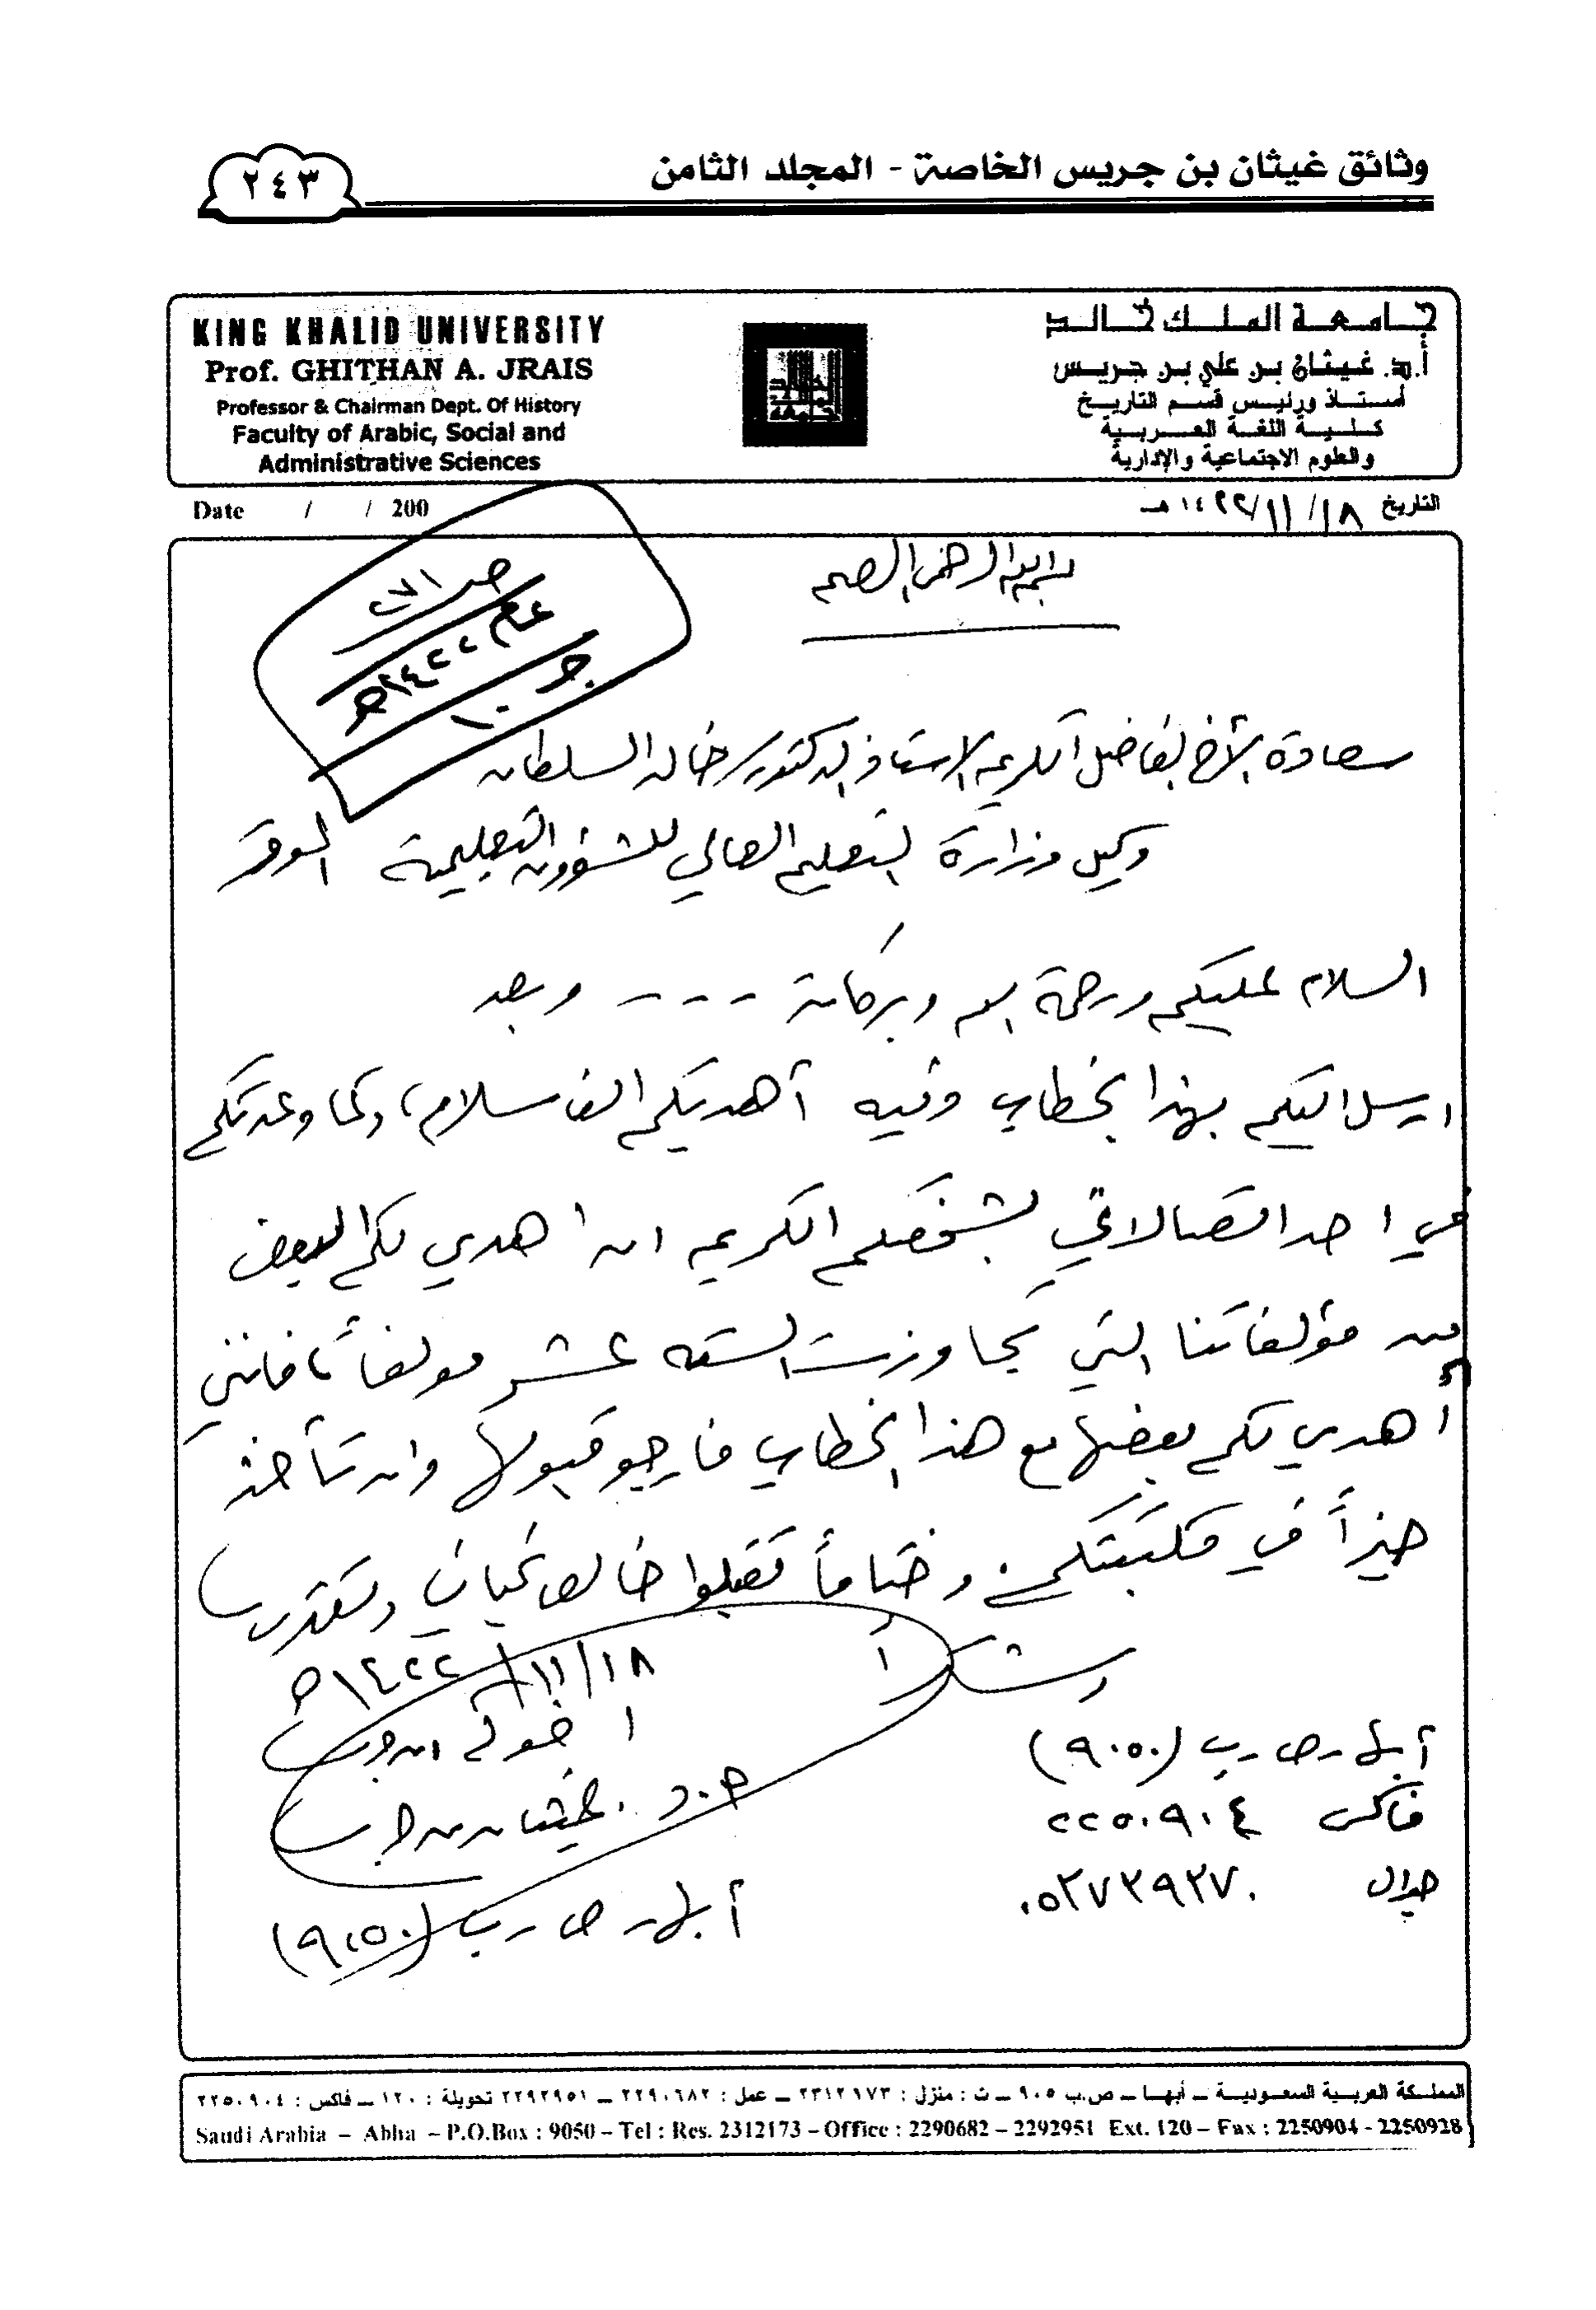 وثائق غيثان بن جريس الخاصة - المجلد الثامن
٢٤٣
KING KHALID UNIVERSITY
Prof. GHITHAN A. JRAIS
Professor & Chairman Dept. Of History
Faculty of Arabic, Social and
Administrative Sciences
جامعة الملك خالد
أ.د. غيثان بن علي بن جريس
أستاذ ورئيس قسم التاريخ
كلية اللغة العربية
والعلوم الاجتماعية والإدارية
Date / / 200
التاريخ ١٨/١١/١٤٢٢هـ
بسم الله الرحمن الرحيم
ص ٢٧١
عام ١٤٢٢هـ
جـ ١٠
سعادة الأخ الفاضل الكريم الاستاذ الدكتور/ خالد السلطان
وكيل وزارة التعليم العالي للشؤون التعليمية الموقر
السلام عليكم ورحمة الله وبركاته - - - - وبعد
ارسل اليكم بهذا الخطاب وفيه أهديكم الف سلام، وكما وعدتكم
في احد اتصالاتي بشخصكم الكريم ان اهدي لكم البعض
من مؤلفاتنا التي تجاوزت الستة عشر مولفاً فانني
أهدي لكم بعضها مع هذا الخطاب فارجو قبولها وان تأخذ
حيزاً في مكتبتكم. وختاماً تقبلوا خالص تحياتي وتقديري
وشكراً
١٨/١١/١٤٢٢هـ
اخوكم
أ.د. غيثان بن جريس
أبها - ص - ب (٩٠٥٠)
أبها - ص - ب (٩٠٥٠)
فاكس ٢٢٥٠٩٠٤
جوال ٠٥٣٧٣٩٣٧٠
المملكة العربية السعودية – أبها – ص.ب ٩٠٥ – ت : منزل : ٢٣١٢١٧٣ – عمل : ٢٢٩٠٦٨٢ – ٢٢٩٢٩٥١ تحويلة : ١٢٠ – فاكس : ٢٢٥٠٩٠٤
Saudi Arabia – Abha – P.O.Box : 9050 – Tel : Res. 2312173 – Office : 2290682 – 2292951 Ext. 120 – Fax : 2250904 - 2250928